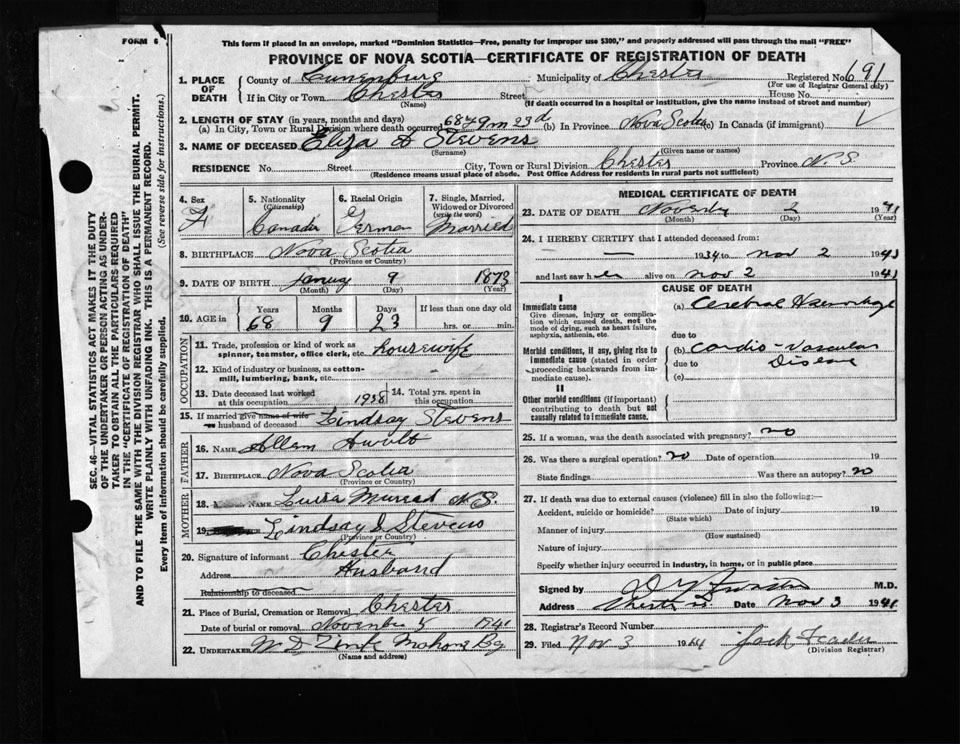 FORM 6
This form if placed in an envelope, marked "Dominion Statistics—Free, penalty for improper use $300," and properly addressed will pass through the mail "FREE"
PROVINCE OF NOVA SCOTIA—CERTIFICATE OF REGISTRATION OF DEATH
1. PLACE OF DEATH County of Lunenburg Municipality of Chester Registered No. 691
(For use of Registrar General only)
If in City or Town Chester Street House No.
(Name) (If death occurred in a hospital or institution, give the name instead of street and number)
2. LENGTH OF STAY (in years, months and days)
(a) In City, Town or Rural Division where death occurred 68 y 9 m 23 d (b) In Province Nova Scotia (c) In Canada (if immigrant)
3. NAME OF DECEASED Eliza Stevens
(Surname) (Given name or names)
RESIDENCE No. Street City, Town or Rural Division Chester Province N.S.
(Residence means usual place of abode. Post Office Address for residents in rural parts not sufficient)
4. Sex F
5. Nationality (Citizenship) Canada
6. Racial Origin German
7. Single, Married, Widowed or Divorced (write the word) Married
8. BIRTHPLACE Nova Scotia
(Province or Country)
9. DATE OF BIRTH 9 1873
(Month) (Day) (Year)
10. AGE in Years 68 Months 9 Days 23 If less than one day hrs. or min.
OCCUPATION
11. Trade, profession or kind of work as spinner, teamster, office clerk, etc. housewife
12. Kind of industry or business, as cotton-mill, lumbering, bank, etc.
13. Date deceased last worked at this occupation 1938 14. Total yrs. spent in this occupation
15. If married give name of wife or husband of deceased Lindsay Stevens
FATHER
16. Name Allen
17. Birthplace Nova Scotia
(Province or Country)
MOTHER
18. Name Luisa N.S.
19. Lindsay Stevens
(Province or Country)
20. Signature of informant Chester
Address Husband
Relationship to deceased
21. Place of Burial, Cremation or Removal Chester
Date of burial or removal November 5 1941
22. UNDERTAKER Mahone Bay
(Name and address)
MEDICAL CERTIFICATE OF DEATH
23. DATE OF DEATH 2 1941
(Month) (Day) (Year)
24. I HEREBY CERTIFY that I attended deceased from:
— 1934 to Nov 2 1941
and last saw her alive on Nov 2 1941
CAUSE OF DEATH
I
Immediate cause
Give disease, injury or complication which caused death, not the mode of dying, such as heart failure, asphyxia, asthenia, etc.
(a) Cerebral Haemorrhage
due to
Morbid conditions, if any, giving rise to immediate cause (stated in order proceeding backwards from immediate cause).
(b) Cardio-Vascular
due to Disease
(c)
II
Other morbid conditions (if important) contributing to death but not causally related to immediate cause.
25. If a woman, was the death associated with pregnancy? no
26. Was there a surgical operation? no Date of operation 19
State findings Was there an autopsy? no
27. If death was due to external causes (violence) fill in also the following:—
Accident, suicide or homicide? Date of injury 19
(State which)
Manner of injury
(How sustained)
Nature of injury
Specify whether injury occurred in industry, in home, or in public place
Signed by M.D.
Address Date Nov 3 1941
28. Registrar's Record Number
29. Filed Nov 3 1941 Jack
(Division Registrar)
SEC. 46—VITAL STATISTICS ACT MAKES IT THE DUTY
OF THE UNDERTAKER OR PERSON ACTING AS UNDER-
TAKER TO OBTAIN ALL THE PARTICULARS REQUIRED
IN THE "CERTIFICATE OF REGISTRATION OF DEATH"
AND TO FILE THE SAME WITH THE DIVISION REGISTRAR WHO SHALL ISSUE THE BURIAL PERMIT.
WRITE PLAINLY WITH UNFADING INK. THIS IS A PERMANENT RECORD.
Every item of information should be carefully supplied. (See reverse side for instructions.)